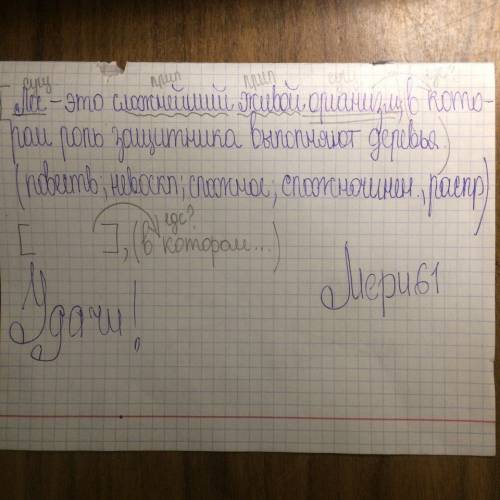 сущ прил прил сущ
[Лес - это сложнейший живой организм, в кото-
ром роль защитника выполняют деревья.
(повеств; невоскл; сложное; сложночинен., распр)
где?
[ ], (в котором...)
Мери61
Удачи!